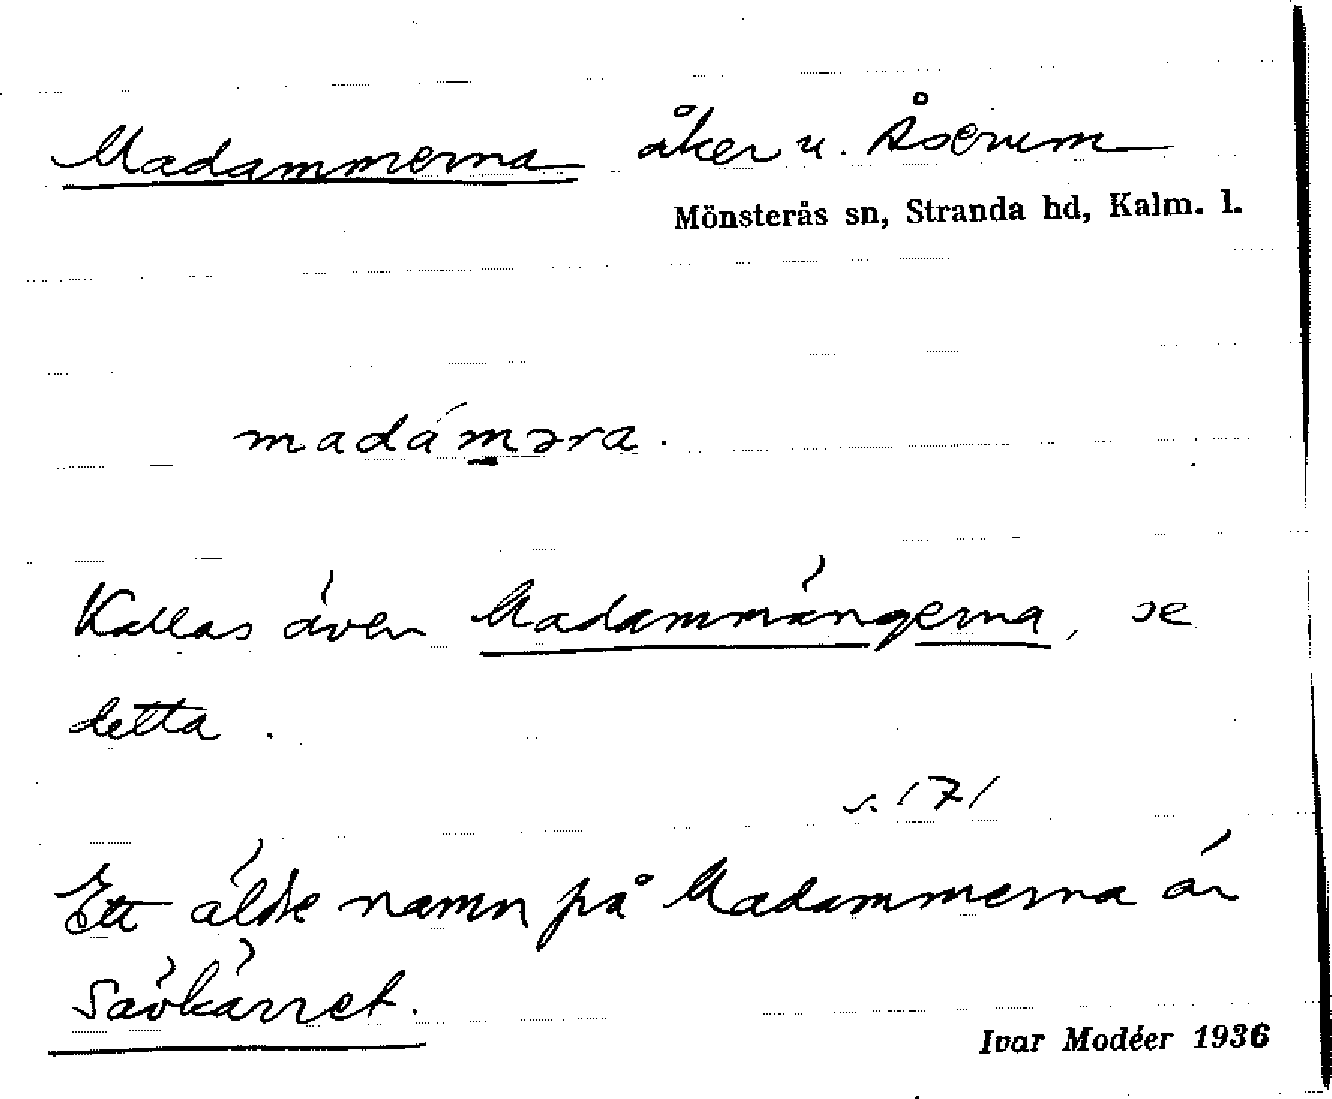 Madammerna åker u. Åserum
Mönsterås sn, Stranda hd, Kalm. l.
madáməra.
Kallas även Madammängerna, se
detta.
s. 171
Ett äldre namn på Madammerna är
Sävkärret.
Ivar Modéer 1936